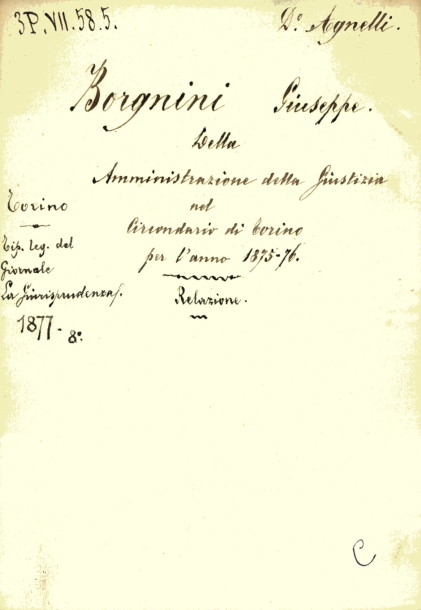 3P.VII.58.5.
Dº. Agnelli.
Borgnini Giuseppe.
Della
Amministrazione della Giustizia
nel
Circondario di Torino
per l'anno 1875-76.
Relazione.
Torino
Tip. leg. del
Giornale
La Giurisprudenza.
1877-
8º
C